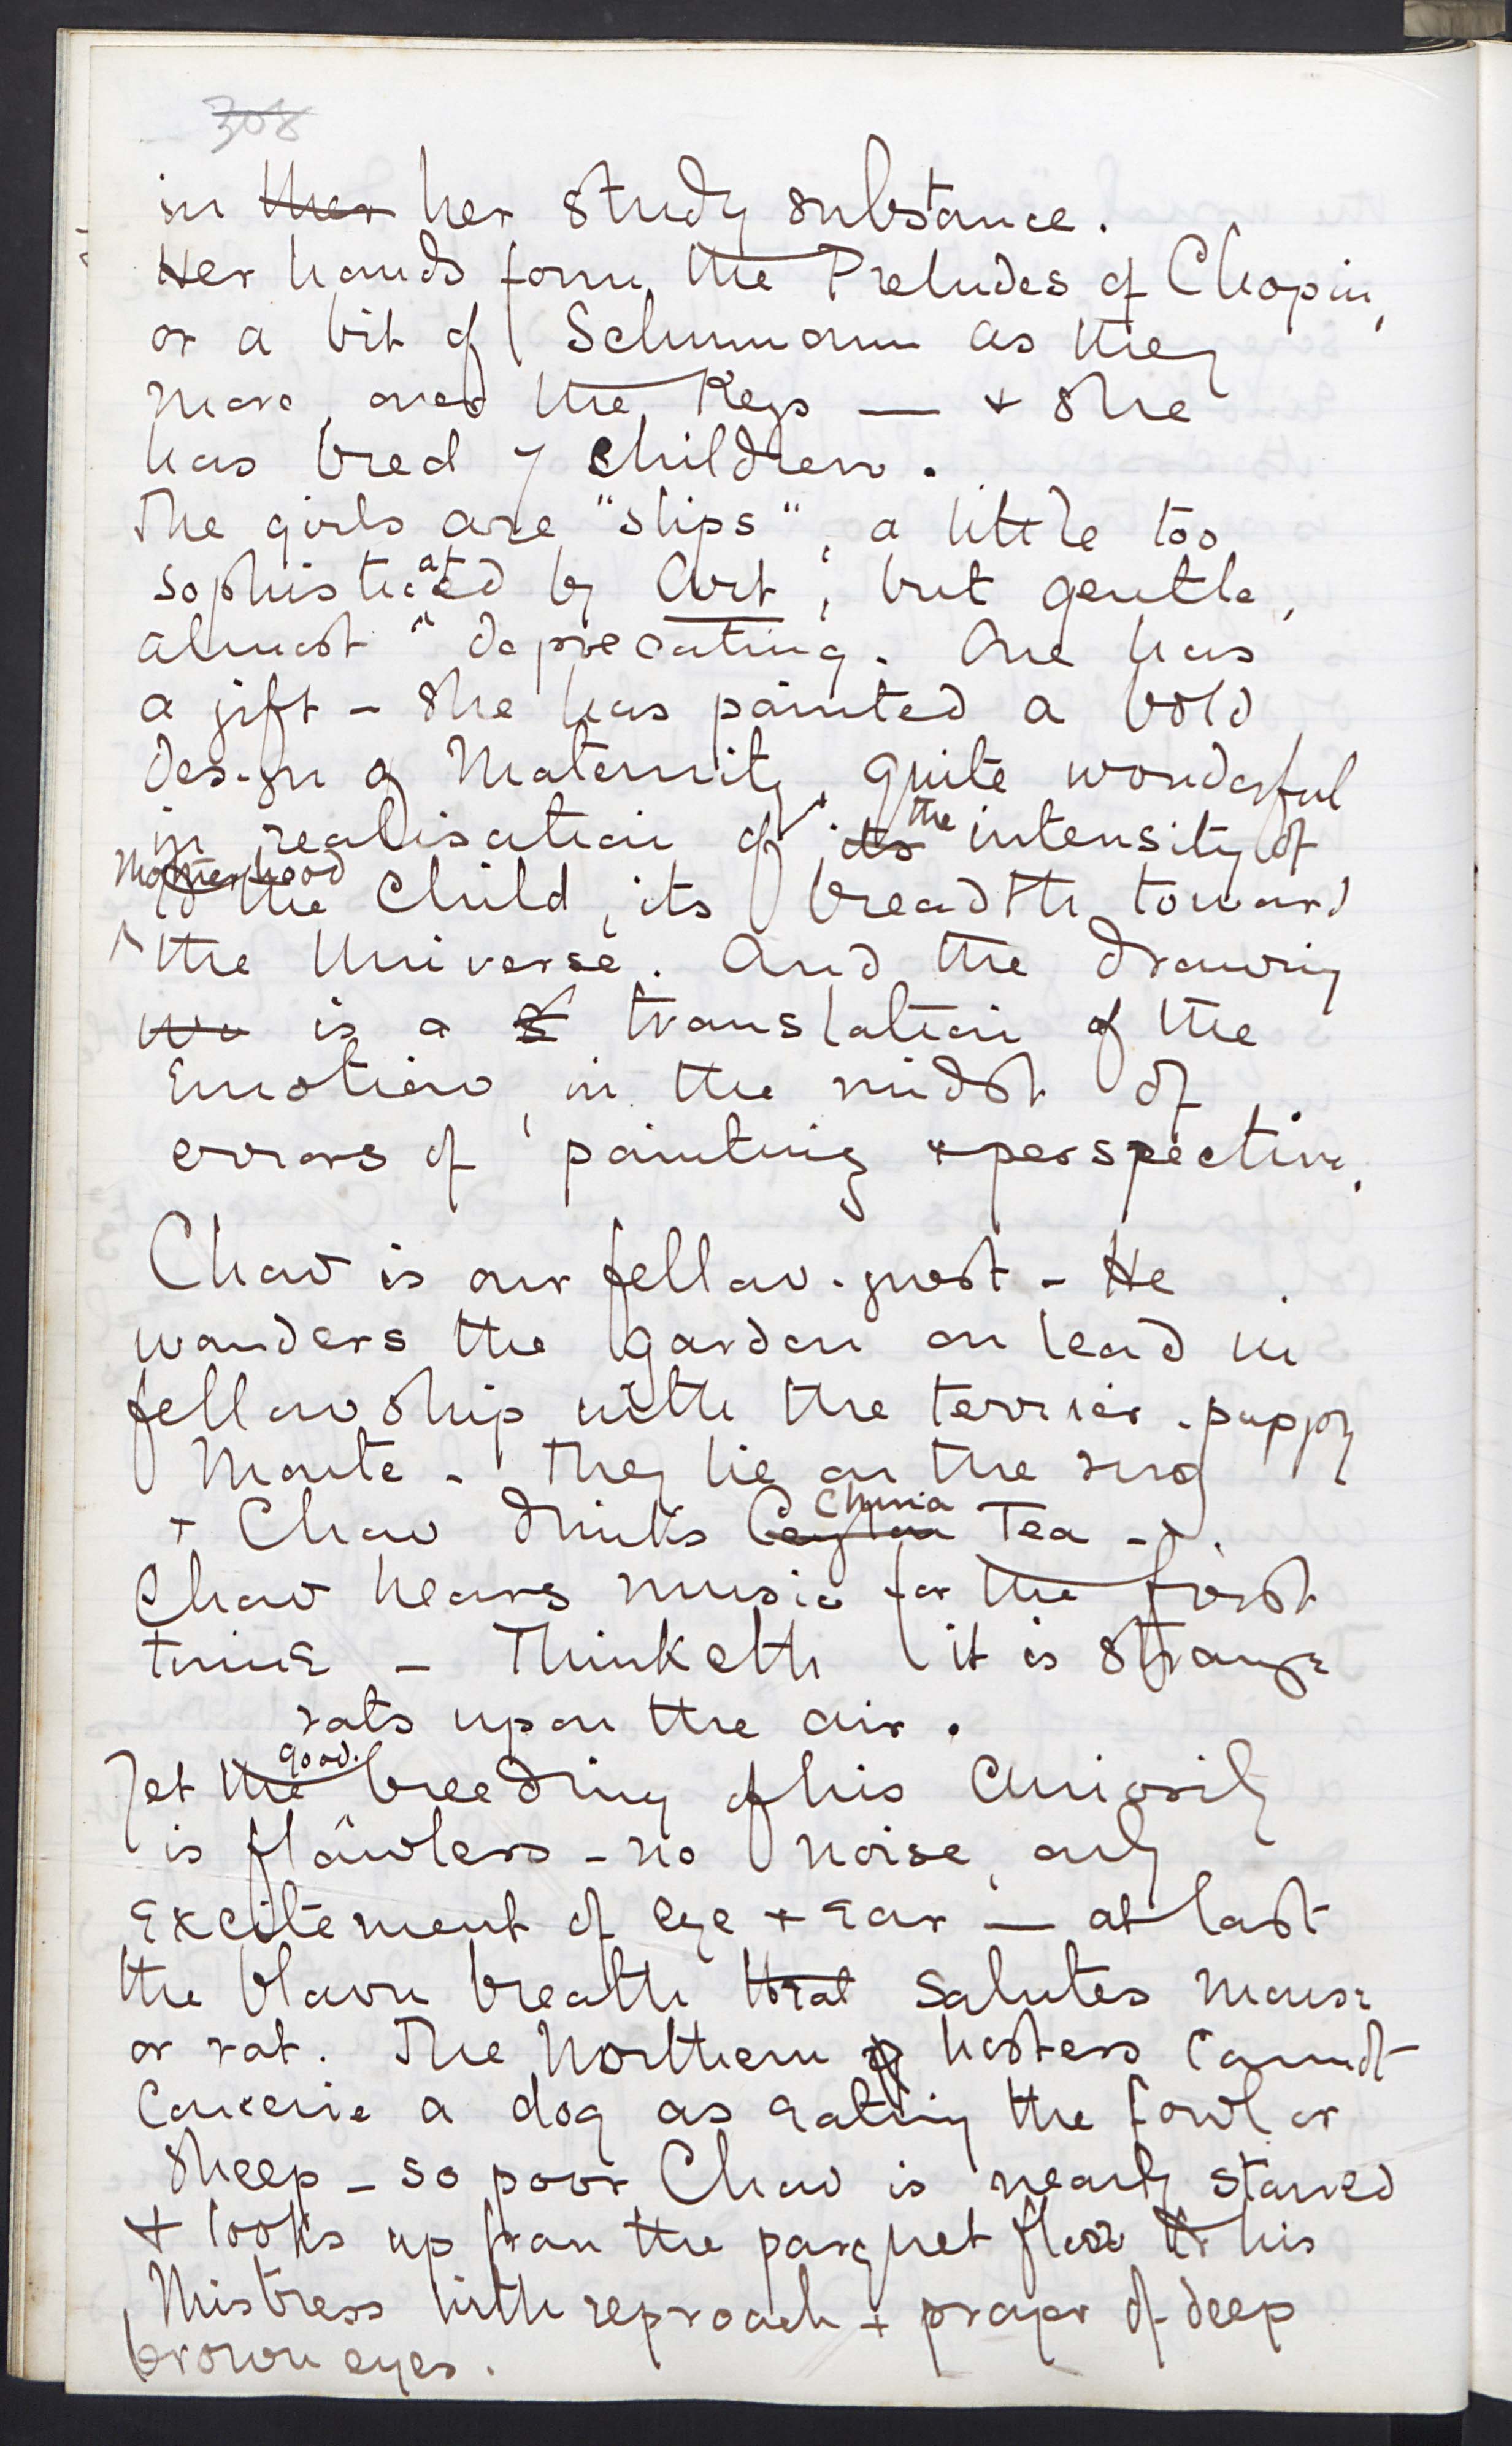 308
in ther her study substance.
Her hands form the Preludes of Chopin,
or a bit of Schumann as they
move over the Keys — + she
has bred 7 children.
The girls are "slips", a little too
sophisticated by Art; but gentle,
almost deprecating. One has
a gift - she has painted a bold
design of Maternity, quite wonderful
in realisation of its the intensity of
Motherhood
to the child, its breadth toward
the Universe. And the drawing
is a translation of the
Emotion, in the midst of
errors of painting + perspective.
Chow is our fellow-guest - He
wanders the garden on lead in
fellowship with the terrier-puppy
Monte - They lie on the rug
+ Chow drinks Ceylon China Tea -
Chow hears music for the first
time - Thinketh it is strange
rats upon the air.
Yet the good-breeding of his Curiosity
is flawless - no noise, only
Excitement of eye + ear — at last
the blown breath that salutes mouse
or rat. The Northern hostess cannot
Conceive a dog as eating the fowl or
Sheep - so poor Chow is nearly starved
+ looks up from the parquet floor to his
Mistress with reproach + prayer of deep
brown eyes.